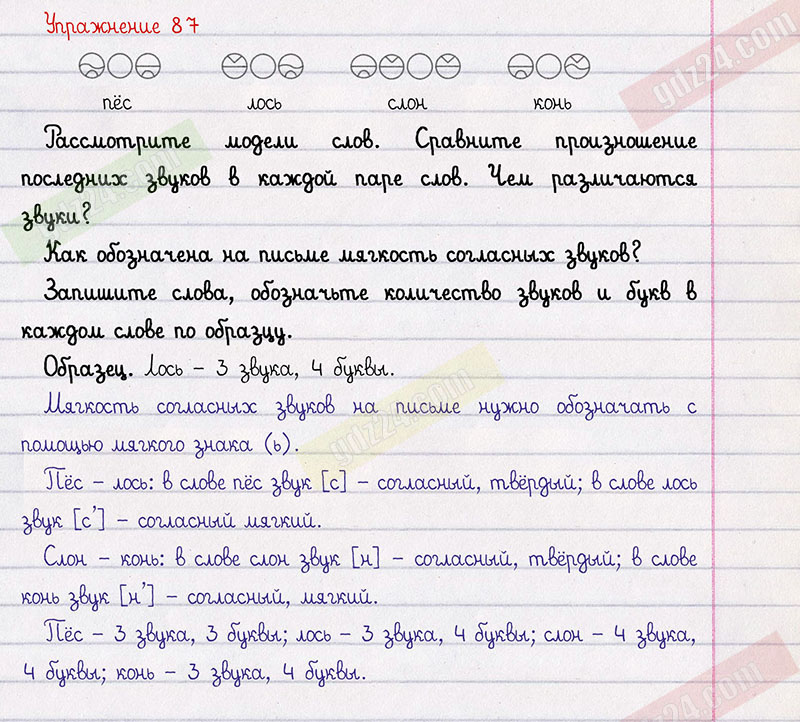 Упражнение 87
пёс лось слон конь
Рассмотрите модели слов. Сравните произношение
последних звуков в каждой паре слов. Чем различаются
звуки?
Как обозначена на письме мягкость согласных звуков?
Запишите слова, обозначьте количество звуков и букв в
каждом слове по образцу.
Образец. Лось – 3 звука, 4 буквы.
Мягкость согласных звуков на письме нужно обозначать с
помощью мягкого знака (ь).
Пёс – лось: в слове пёс звук [с] – согласный, твёрдый; в слове лось
звук [с’] – согласный мягкий.
Слон – конь: в слове слон звук [н] – согласный, твёрдый; в слове
конь звук [н’] – согласный, мягкий.
Пёс – 3 звука, 3 буквы; лось – 3 звука, 4 буквы; слон – 4 звука,
4 буквы; конь – 3 звука, 4 буквы.
gdz24.com
gdz24.com
gdz24.com
gdz24.com